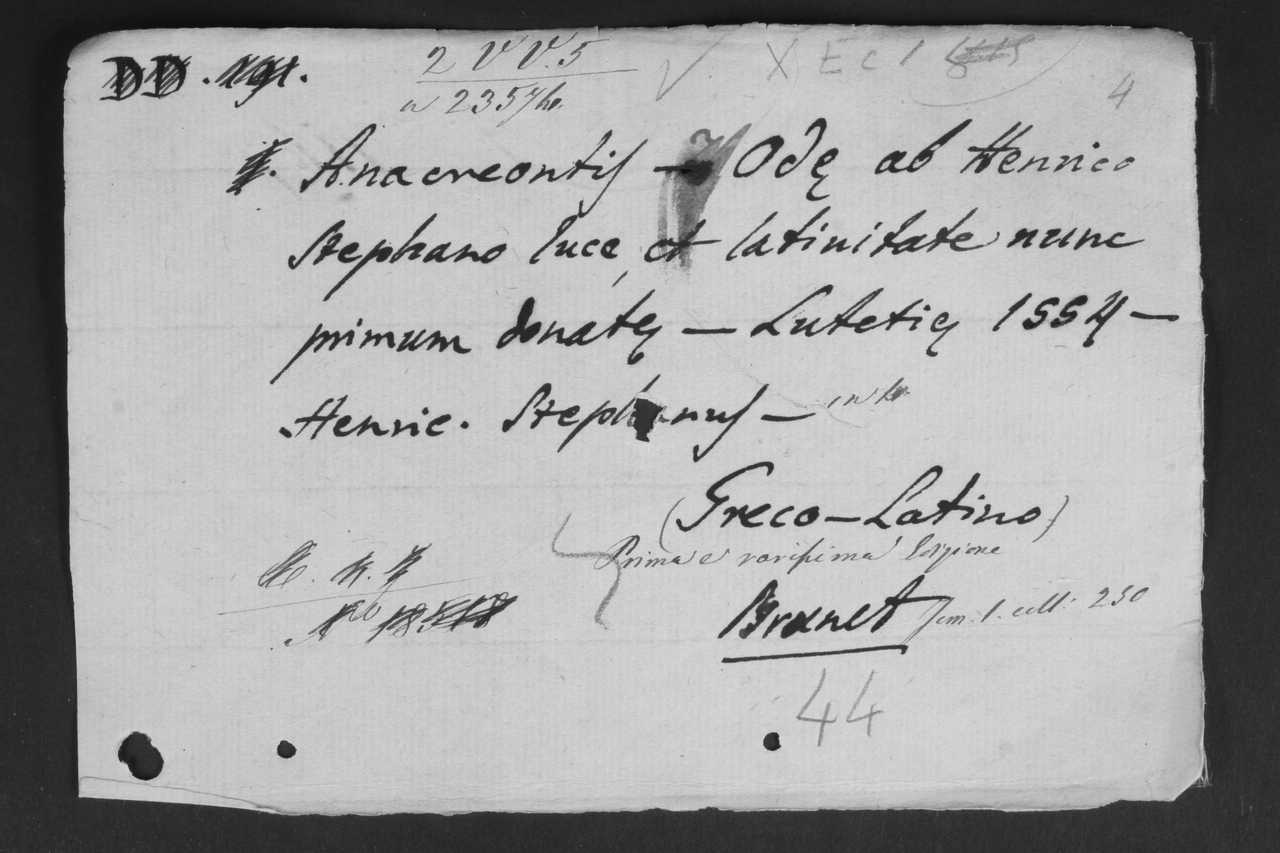 2 VV. 5
X E C 1
4
Anacreontis — Odę ab Henrico
Stephano luce, et latinitate nunc
primum donatę — Lutetię 1554 —
Henric. Stephanus — in 4o
(Greco-Latino)
Prima e rarissima Edizione
Brunet Tom. 1. coll. 250
44